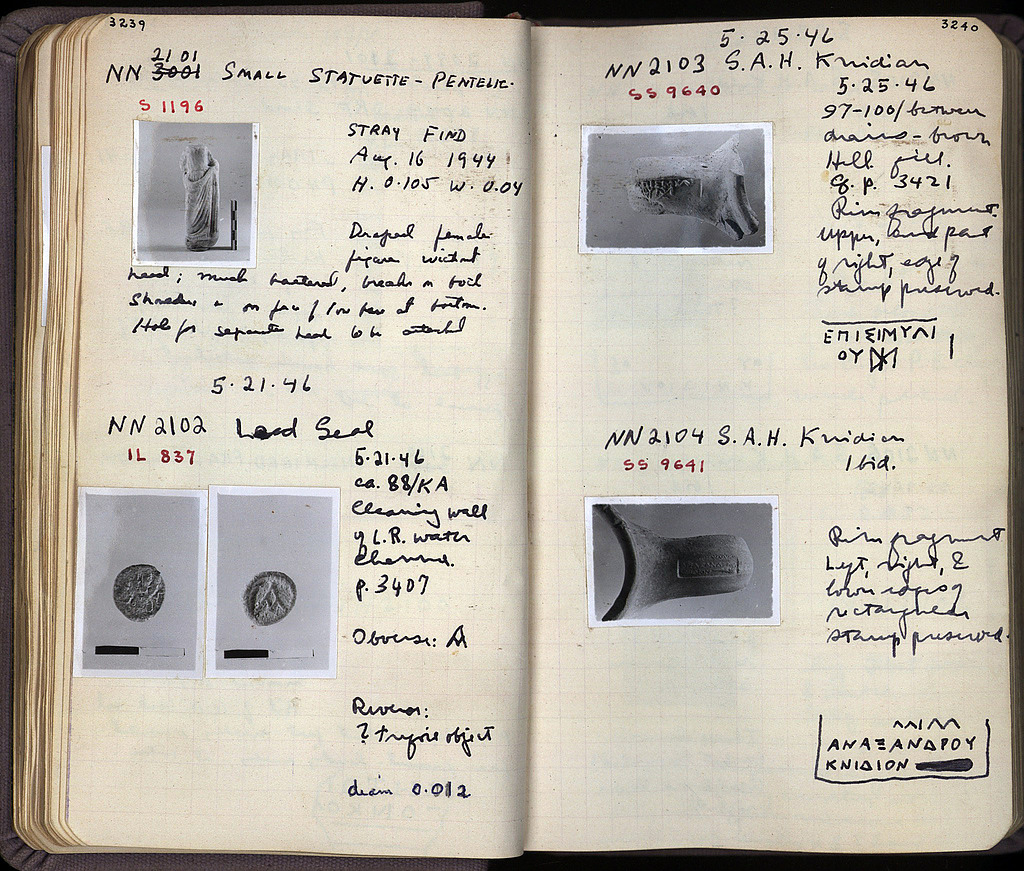 3239
2101
NN 3001 SMALL STATUETTE - PENTELIC.
S 1196
STRAY FIND
Aug. 16 1944
H. 0.105 W. 0.04
Draped female
figure without
head; much battered, breaks on both
shoulders & on
Hole for separate head to be attached
5.21.46
NN 2102 Lead Seal
IL 837
5.21.46
ca. 88/KA
Cleaning wall
of L.R. water
Channel.
p. 3407
Obverse: A
Reverse:
? tripod object
diam 0.012
3240
5.25.46
NN 2103 S.A.H. Knidian
SS 9640
5.25.46
97-100/between
drains - brown
Hell. fill.
Cf. p. 3421
Rim fragment.
Upper, and part
of right, edge of
stamp preserved.
ΕΠΙΣΙΜΥΛΙ
ΟΥ
NN 2104 S.A.H. Knidian
SS 9641
Ibid.
Rim fragment
Left, right, &
lower edges of
rectangular
stamp preserved.
ΑΝΑΞΑΝΔΡΟΥ
ΚΝΙΔΙΟΝ